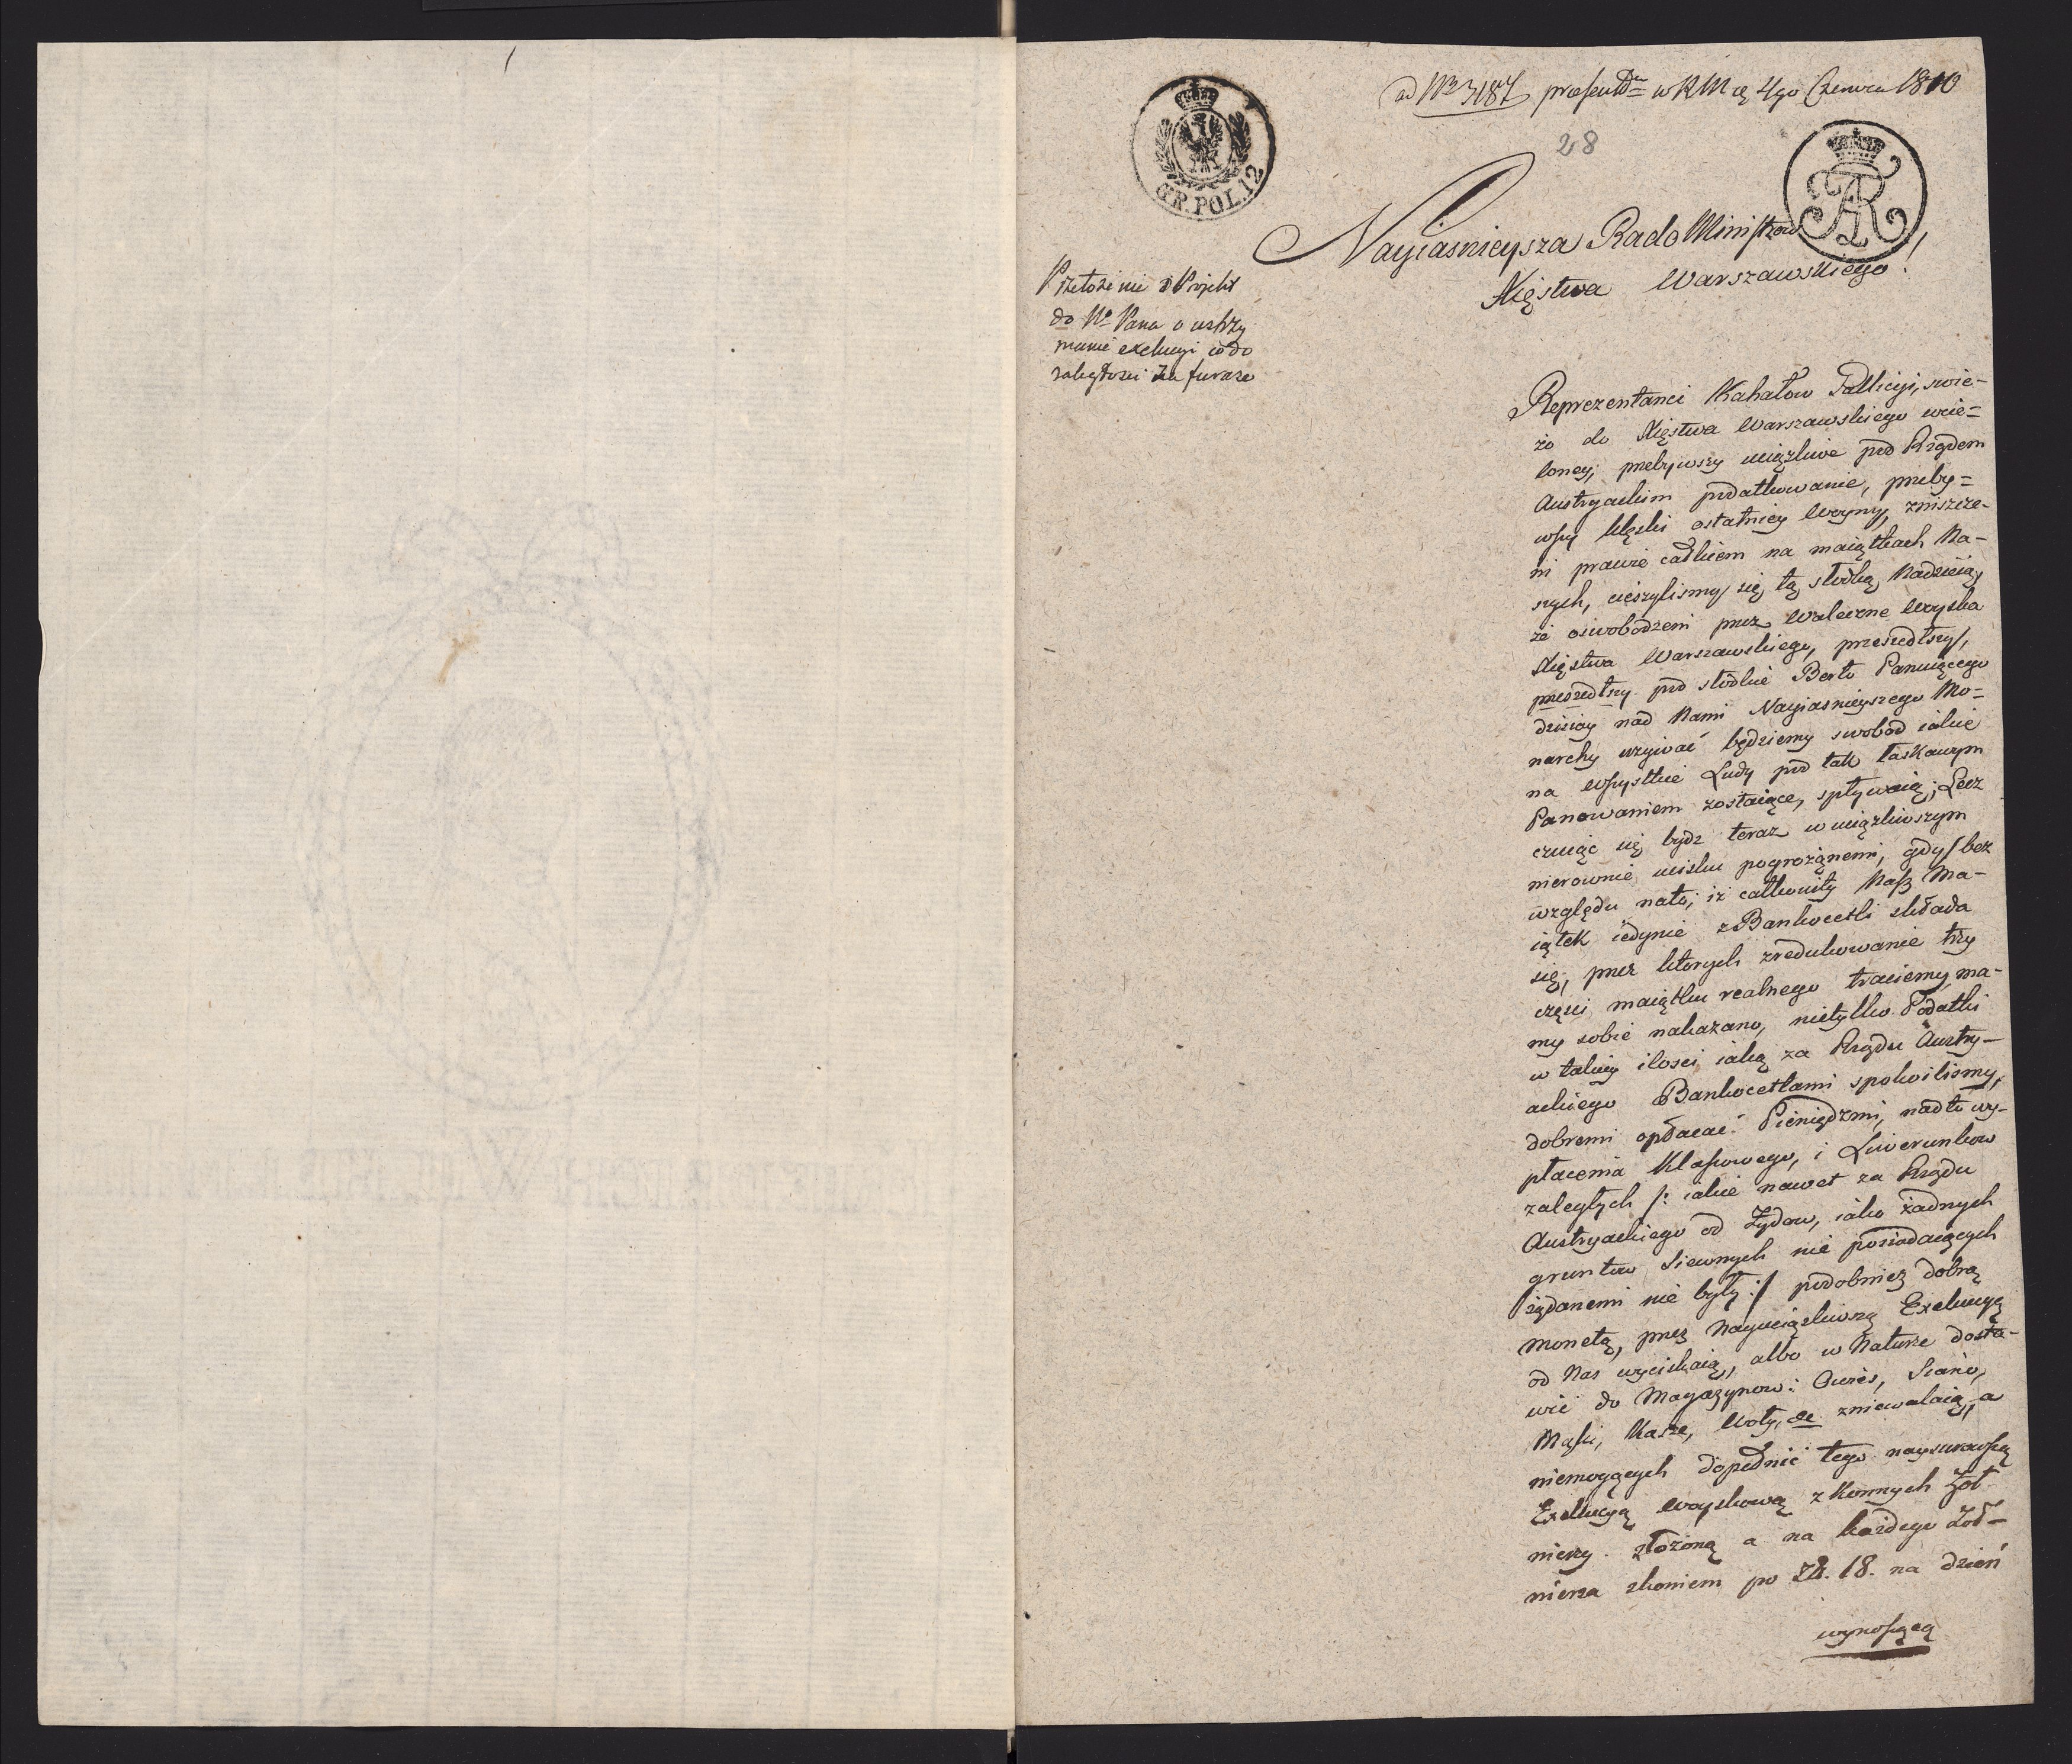 ad Nro 3187 praesentdn w RM rę 4go Czerwca 1810
28
GR.POL.12
Nayiasnieysza Rado Ministrow
Xięstwa Warszawskiego!
Przełożenie
do No Pana o wstrzy
manie exekucyi co do
zaległości za furaże
Reprezentanci Kahałow Gallicyi, swie-
żo do Xięstwa Warszawskiego wcie=
loney; przebywszy uciążliwe pod Rządem
Austryackim podatkowanie, przeby=
wszy klęski ostatniey Woyny, zniszcze-
ni prawie całkiem na maiątkach Na-
szych, cieszylismy się, tą słodką Nadzieią,
że oswobodzeni przez Waleczne Woyska
Xięstwa Warszawskiego, przeszedłszy,
przeszedłszy pod słodkie Berło Panuiącego
dzisiay nad Nami Nayiasnieyszego Mo=
narchy używać będziemy swobod iakie
na wszystkie Ludy pod tak łaskawym
Panowaniem zostaiące, spływaią; Lecz
czuiąc się bydz teraz w uciążliwszym
nierownie ucisku pogrożonemi, gdy bez
względu nato, iż całkowity Nasz Ma-
iątek iedynie z Bankocetli składa
się, przez ktorych zredukowanie trzy
części maiątku realnego traciemy, ma-
my sobie nakazano, nietylko Podatki
w takiey ilosci iaką za Rządu Austry-
ackiego Bankocetlami spokoilismy,
dobremi opłacać Pieniądzmi, nadto wy-
płacenia Klassowego, i Liwerunkow
zaległych /: iakie nawet za Rządu
Austryackiego od Żydow, iako żadnych
gruntow Siewnych nie posiadaiących
żądanemi nie były :/ podobnież dobrą
monetą, przez Nayuciążliwszą Exekucyą
od Nas wyciskaią, albo w Naturze dosta-
wić do Magazynow: Owies, Siano,
Mąki, Kasze, Woły, &c zniewalaią, a
niemogących dopełnić tego naysurowszą
Exekucyą Woyskową z Konnych Żoł
nierzy złożoną a na każdego Żoł-
nierza z koniem po Zł. 18. na dzień
wynoszącą